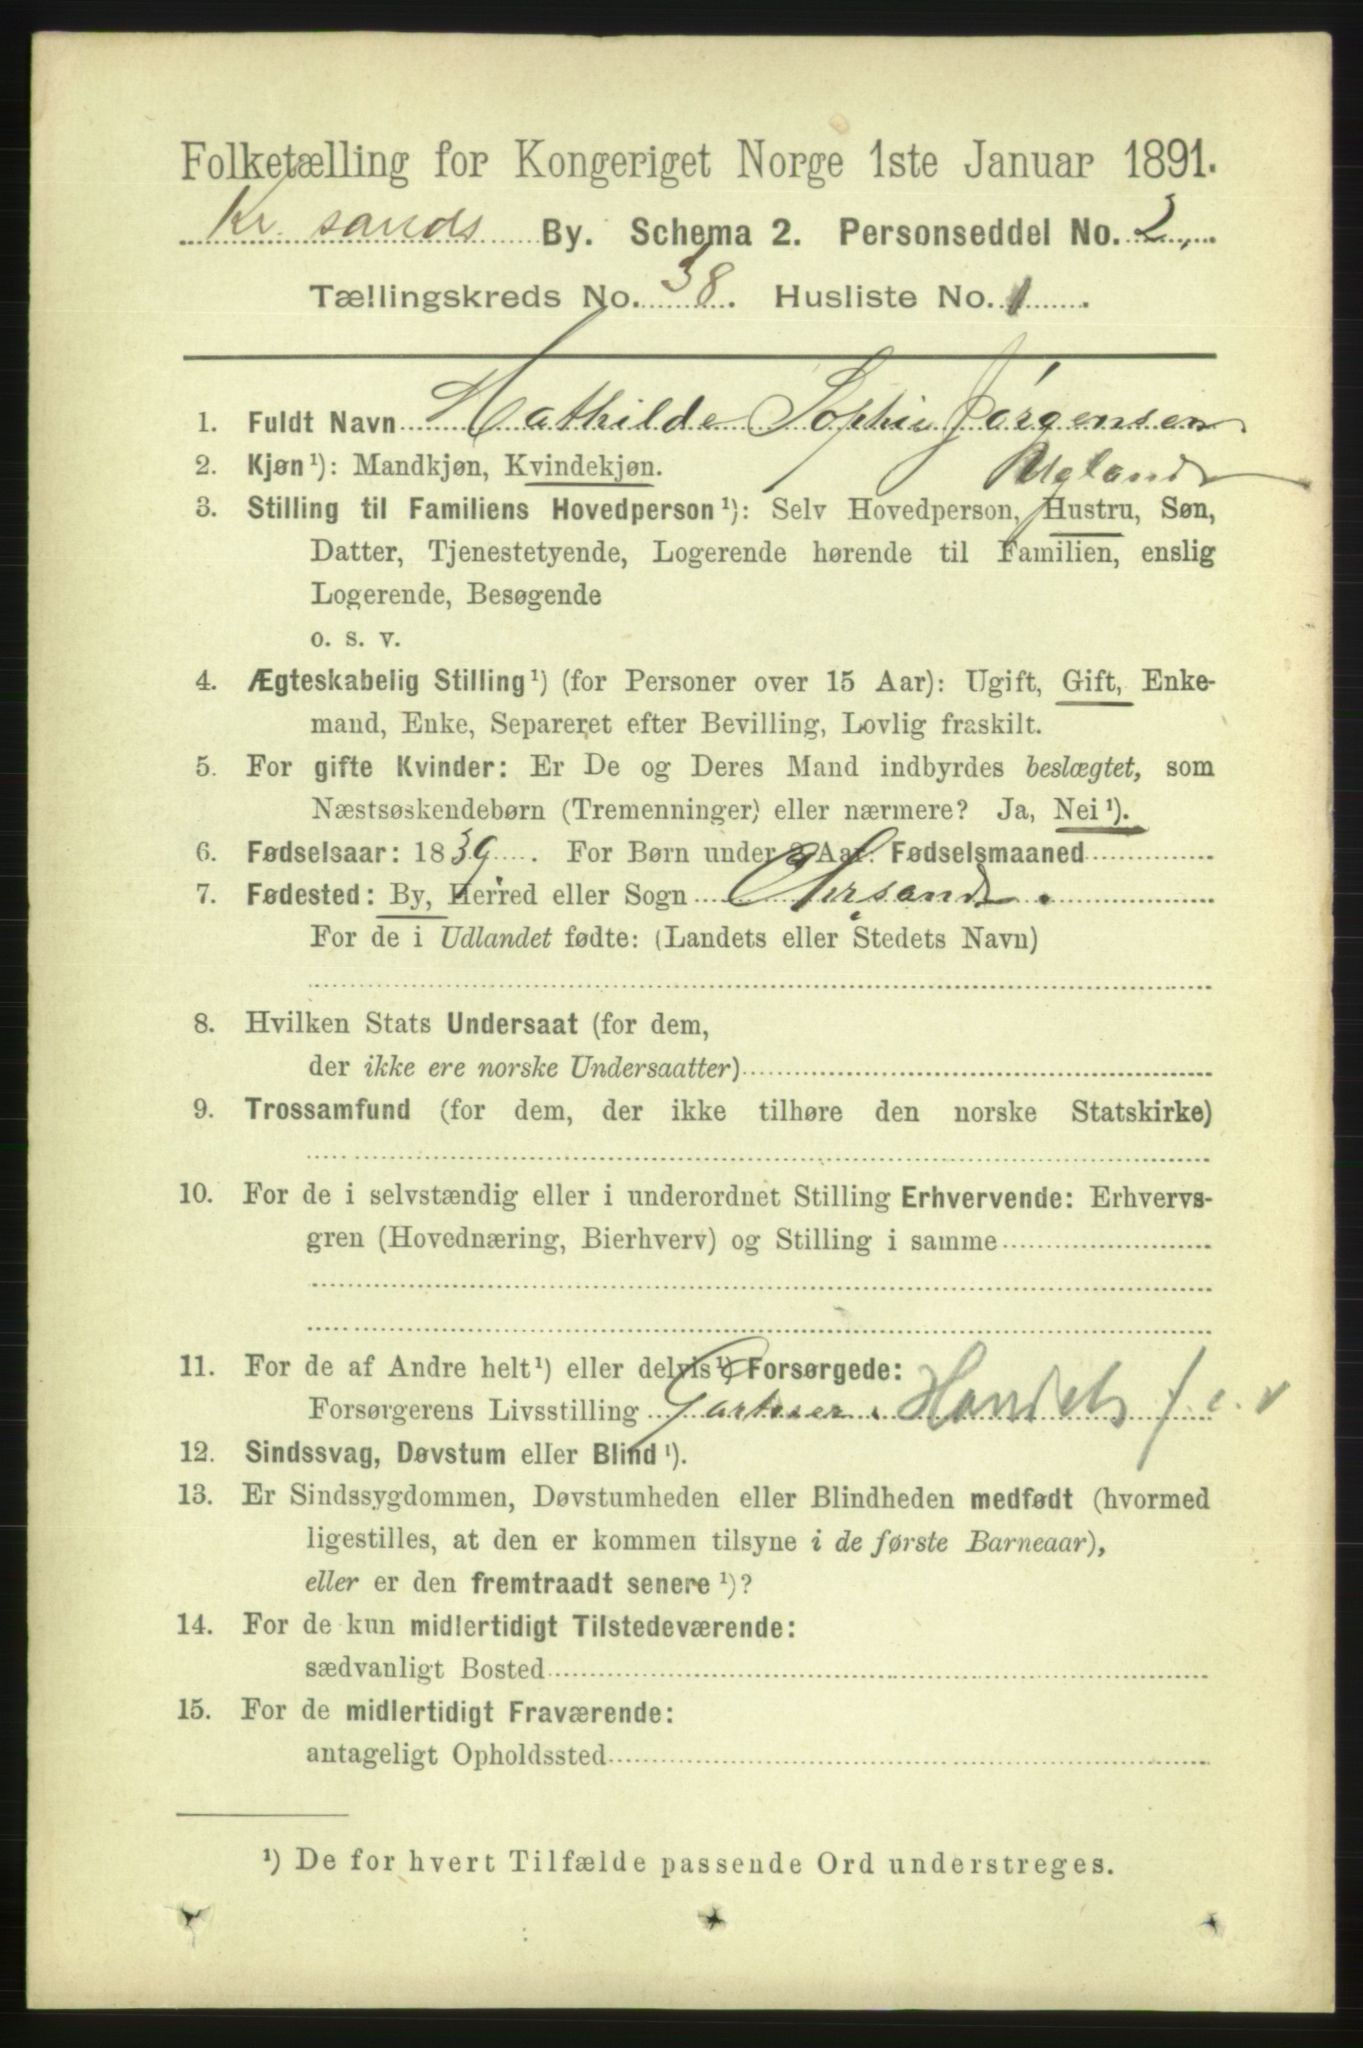 Folketælling for Kongeriget Norge 1ste Januar 1891.
Kr. sands By. Schema 2. Personseddel No. 2.
Tællingskreds No. 38. Husliste No. 1.
1. Fuldt Navn Mathilde Sophie Jørgensen
Ugland
2. Kjøn¹): Mandkjøn, Kvindekjøn.
3. Stilling til Familiens Hovedperson¹): Selv Hovedperson, Hustru, Søn,
Datter, Tjenestetyende, Logerende hørende til Familien, enslig
Logerende, Besøgende
o. s. v.
4. Ægteskabelig Stilling¹) (for Personer over 15 Aar): Ugift, Gift, Enke-
mand, Enke, Separeret efter Bevilling, Lovlig fraskilt.
5. For gifte Kvinder: Er De og Deres Mand indbyrdes beslægtet, som
Næstsøskendebørn (Tremenninger) eller nærmere? Ja, Nei¹).
6. Fødselsaar: 1839. For Børn under 2 Aar: Fødselsmaaned
7. Fødested: By, Herred eller Sogn Chrsand.
For de i Udlandet fødte: (Landets eller Stedets Navn)
8. Hvilken Stats Undersaat (for dem,
der ikke ere norske Undersaatter)
9. Trossamfund (for dem, der ikke tilhøre den norske Statskirke)
10. For de i selvstændig eller i underordnet Stilling Erhvervende: Erhvervs-
gren (Hovednæring, Bierhverv) og Stilling i samme
11. For de af Andre helt¹) eller delvis¹) Forsørgede:
Forsørgerens Livsstilling Gartner. Handels f. e. v
12. Sindssvag, Døvstum eller Blind¹).
13. Er Sindssygdommen, Døvstumheden eller Blindheden medfødt (hvormed
ligestilles, at den er kommen tilsyne i de første Barneaar),
eller er den fremtraadt senere¹)?
14. For de kun midlertidigt Tilstedeværende:
sædvanligt Bosted
15. For de midlertidigt Fraværende:
antageligt Opholdssted
¹) De for hvert Tilfælde passende Ord understreges.